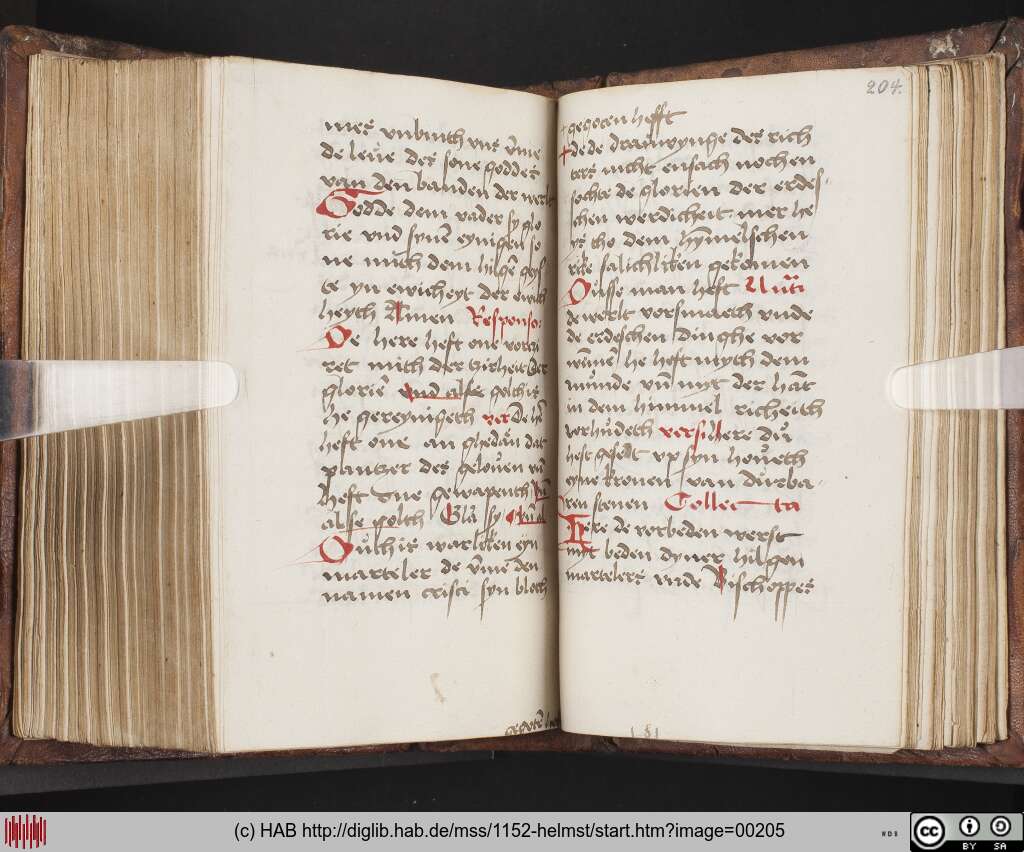 mes vnbinth vns vm̄e
de leue des sone goddes
van den banden der werlt
Godde dem vader sy glo
rie vnd synē eynigen so
ne mith dem hilgē geys
te yn ewicheyt der ewich
heyth Amen Responso
De here heft one
ret mith der tzirheit der
glorien vnd alse golthis
he gereyniget ver De he
heft one an ghedan dat
pantzer des gelouen vn̄
heft one gewapent
alse golth Gla sy
warliken eyn
marteler de vm̄e den
namen cristi syn bloth
204.
gegoten hefft
de de drauwynghe des rich
ters nicht entfach noch en
sochte de glorien der erdes-
schen werdicheit mer he
ys tho dem hymelschen
rike salichliken gekomen
Dusse man heft
de werlt vorsmaeth vnde
de erdeschen dinghe vor
he heft myth dem
munde vn̄ myt der hāt
in dem himmel richeith
vorhudeth versu here du
hefst gesāt vp syn houeth
eyne kronen van durba-
ren stenen Collecta
Here de vorbeden werst
myt beden dyner hilgen
martelers vnde Bischoppes
gegotē
(c) HAB http://diglib.hab.de/mss/1152-helmst/start.htm?image=00205
WDB
cc BY SA